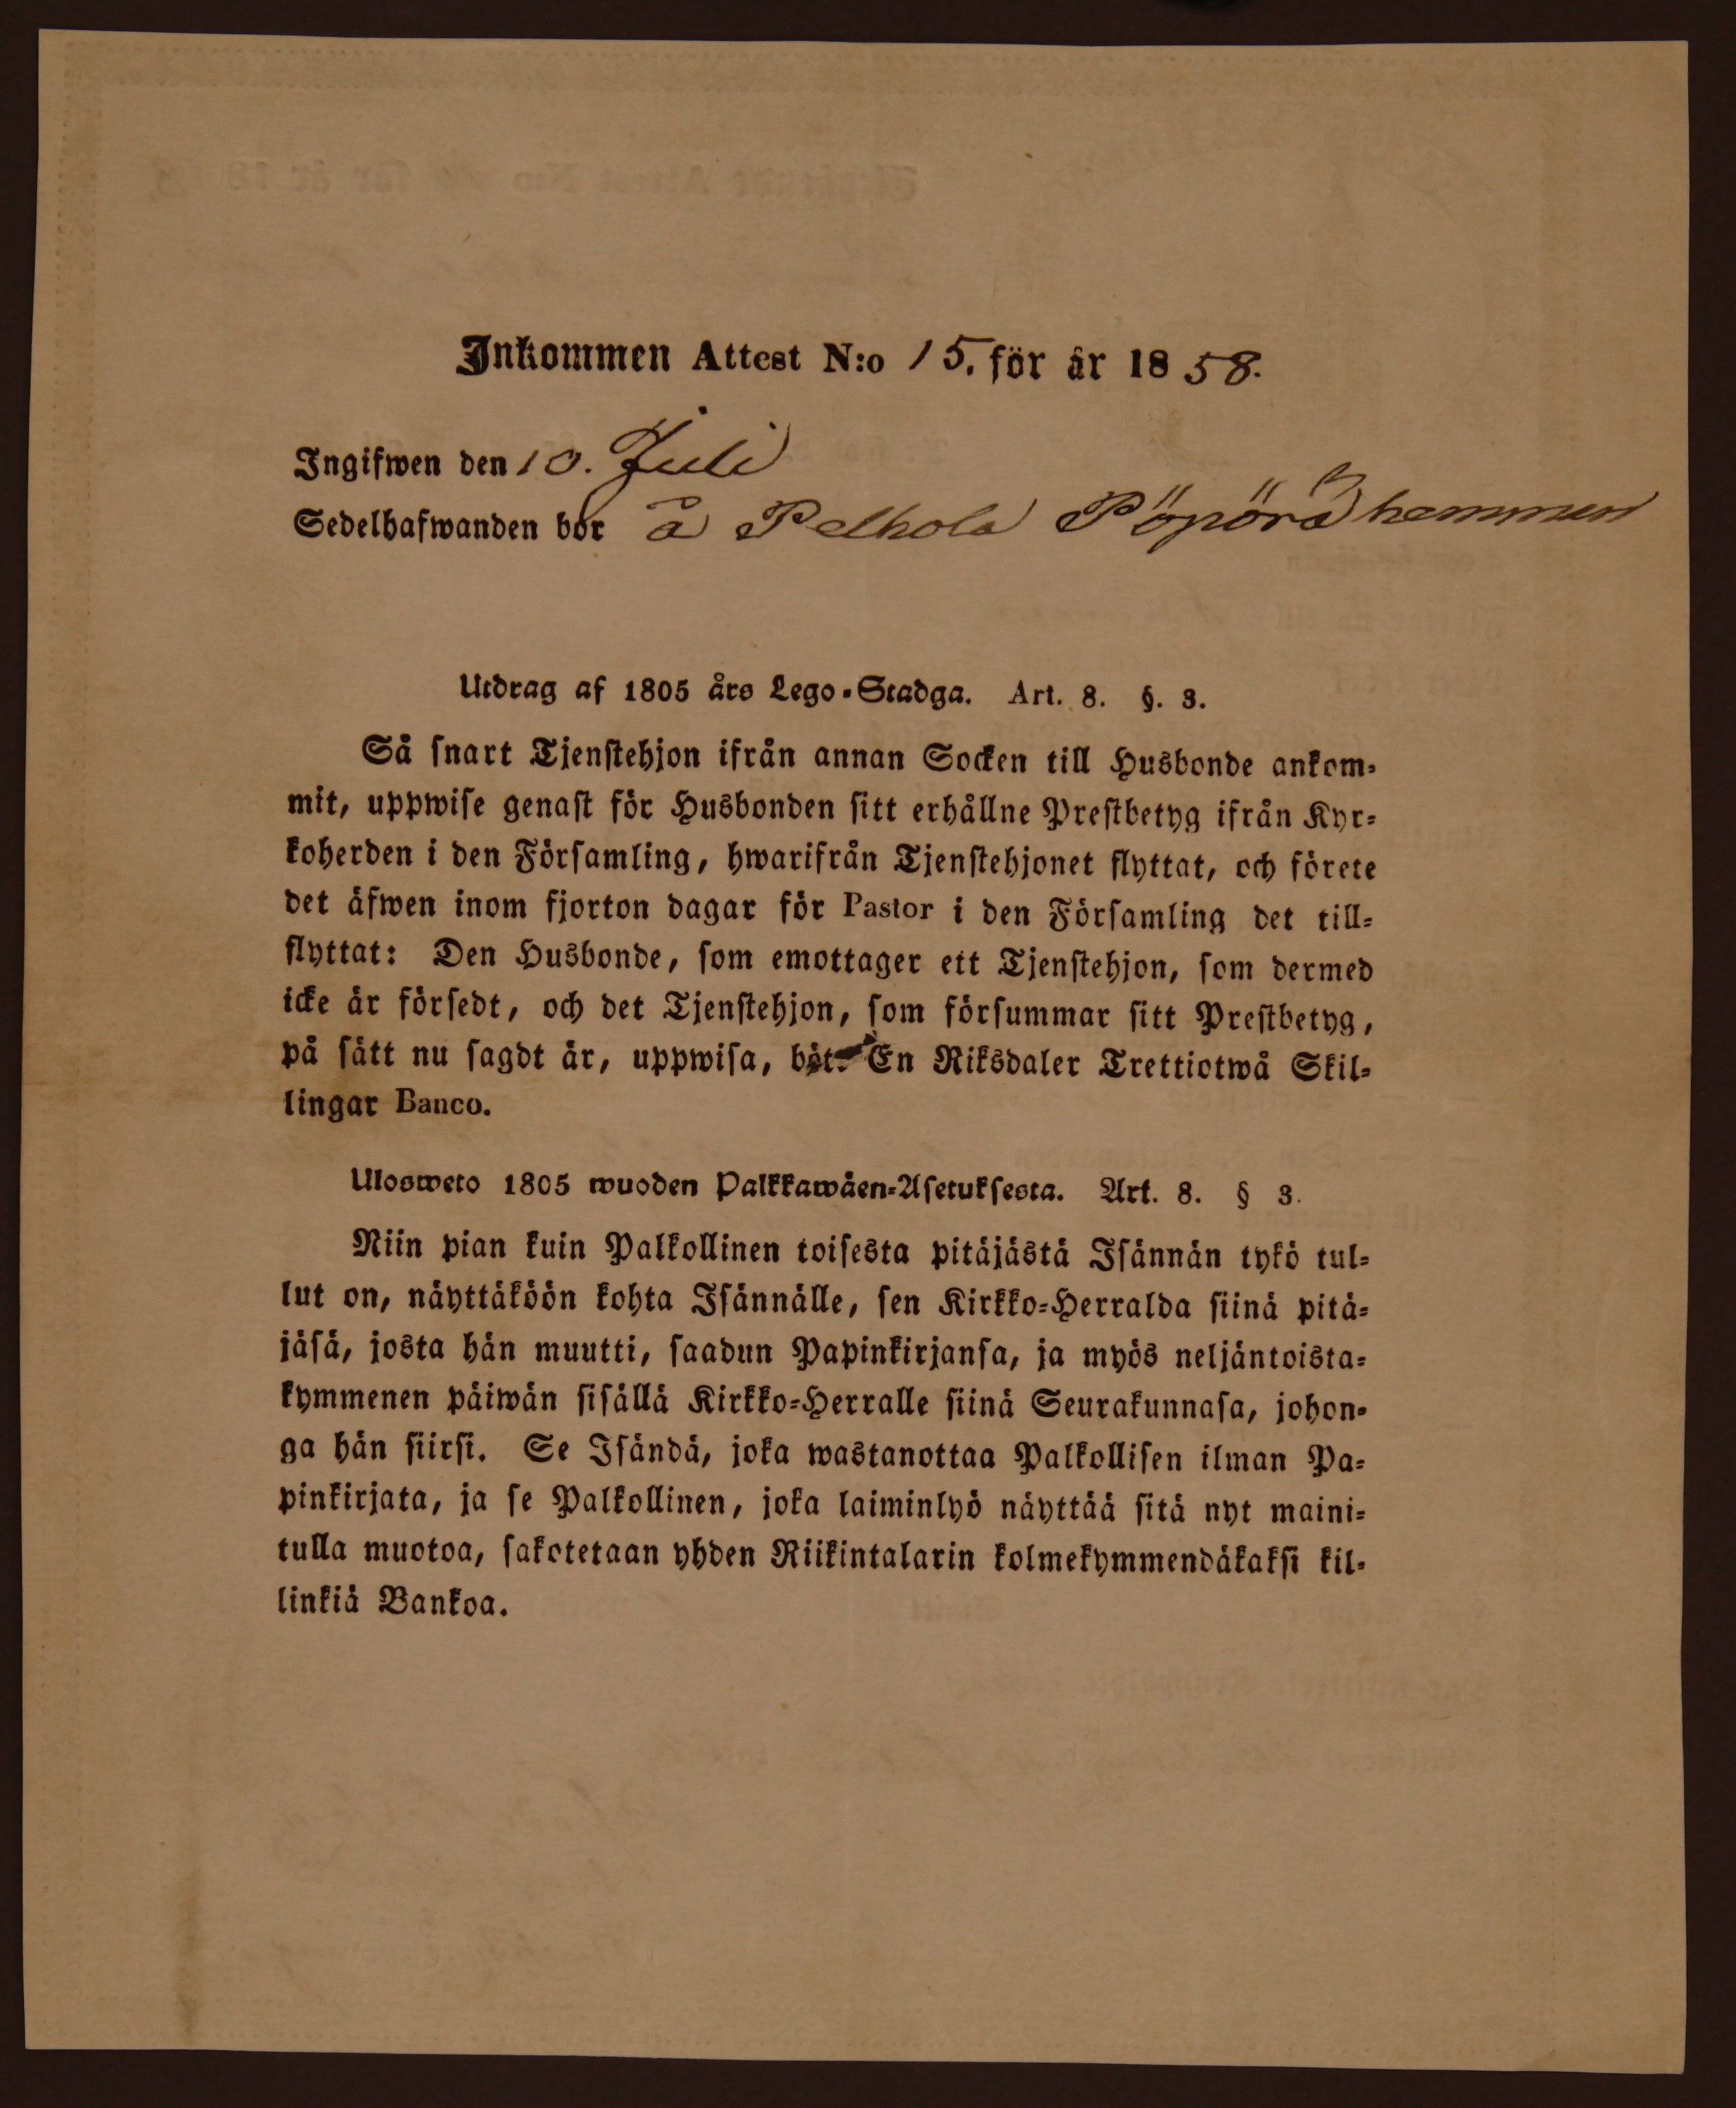 Inkommen Attest N:o 15. för år 1858.
Ingifwen den 10. Juli
Sedelhafwanden bor å Pelhola Pöpörä hemman
Utdrag af 1805 års Lego-Stadga. Art. 8. §. 3.
Så snart Tjenstehjon ifrån annan Socken till Husbonde ankom-
mit, uppwise genast för Husbonden sitt erhållne Prestbetyg ifrån Kyr-
koherden i den Församling, hwarifrån Tjenstehjonet flyttat, och förete
det äfwen inom fjorton dagar för Pastor i den Församling det till-
flyttat: Den Husbonde, som emottager ett Tjenstehjon, som dermed
icke är försedt, och det Tjenstehjon, som försummar sitt Prestbetyg,
på sätt nu sagdt är, uppwisa, böt. En Riksdaler Trettiotwå Skil-
lingar Banco.
Ulosweto 1805 wuoden Palkkawäen-Asetuksesta. Art. 8. § 3.
Niin pian kuin Palkollinen toisesta pitäjästä Isännän tykö tul-
lut on, näyttäköön kohta Isännälle, sen Kirkko-Herralda siinä pitä-
jäsä, josta hän muutti, saadun Papinkirjansa, ja myös neljäntoista-
kymmenen päiwän sisällä Kirkko-Herralle siinä Seurakunnasa, johon-
ga hän siirsi. Se Isändä, joka wastanottaa Palkollisen ilman Pa-
pinkirjata, ja se Palkollinen, joka laiminlyö näyttää sitä nyt maini-
tulla muotoa, sakotetaan yhden Riikintalarin kolmekymmendäkaksi kil-
linkiä Bankoa.